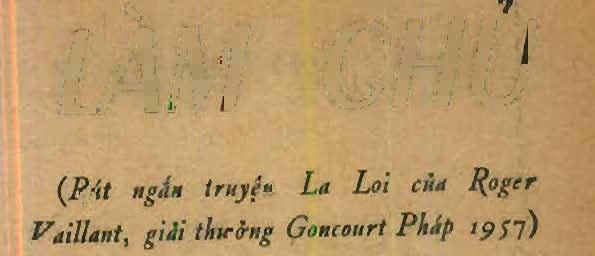 LÀM CHỦ
(Rút ngắn truyện La Loi của Roger
Vaillant, giải thưởng Goncourt Pháp 1957)